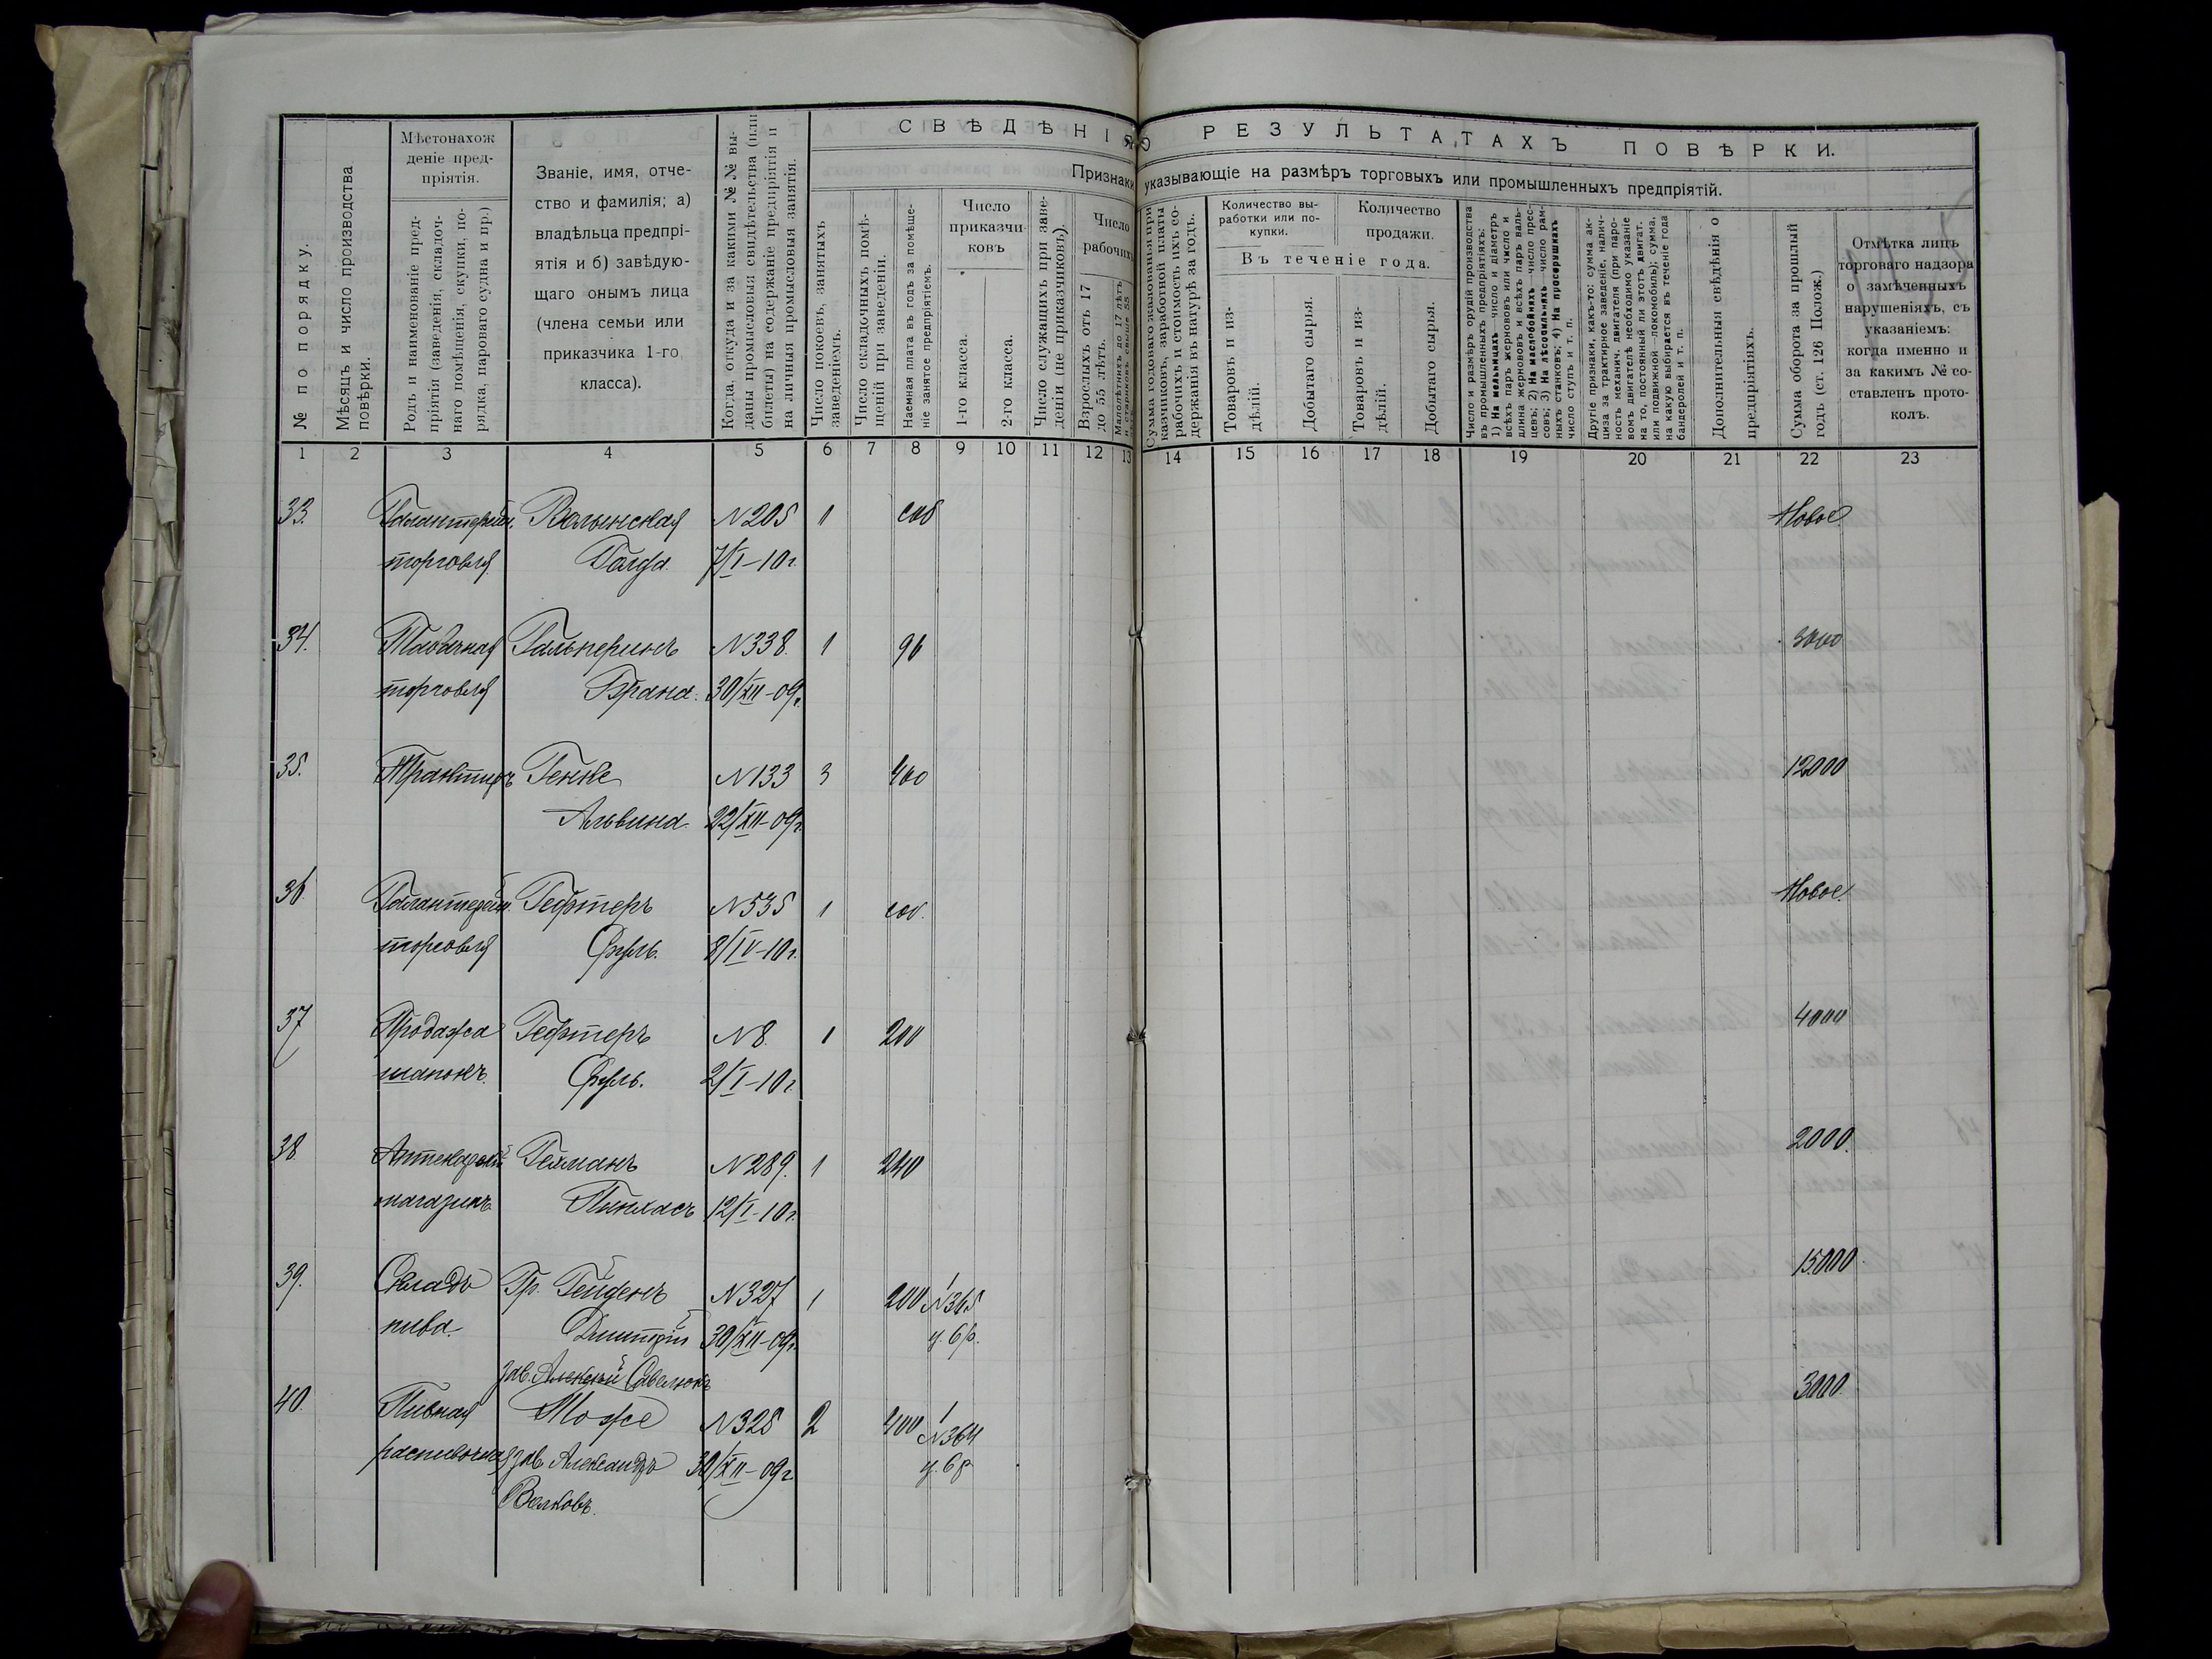 СВѢДѢНІЯ О РЕЗУЛЬТАТАХЪ ПОВѢРКИ.
Признаки, указывающіе на размѣръ торговыхъ или промышленныхъ предпріятій.
№ по порядку.
Мѣсяцъ и число производства повѣрки.
Мѣстонахож
деніе пред-
пріятія.
Родъ и наименованіе пред-
пріятія (заведенія, складоч-
наго помѣщенія, скупки, по-
рядка, пароваго судна и пр.)
Званіе, имя, отче-
ство и фамилія; а)
владѣльца предпрі-
ятія и б) завѣдую-
щаго онымъ лица
(члена семьи или
приказчика 1-го
класса).
Когда, откуда и за какими №№ вы-
даны промысловыя свидѣтельства (или
билеты) на содержаніе предпріятія и
на личныя промысловыя занятія.
Число покоевъ, занятыхъ
заведеніемъ.
Число складочныхъ помѣ-
щеній при заведеніи.
Наемная плата въ годъ за помѣще-
ніе занятое предпріятіемъ.
Число
приказчи-
ковъ
1-го класса.
2-го класса.
Число служащихъ при заве-
деніи (не приказчиковъ).
Число
рабочихъ
Взрослыхъ отъ 17
до 55 лѣтъ.
Малолѣтнихъ до 17 лѣтъ
и стариковъ свыше 55
Сумма годоваго жалованья при-
казчиковъ, заработной платы
рабочихъ и стоимость ихъ со-
держанія въ натурѣ за годъ.
Количество вы-
работки или по-
купки.
Количество
продажи.
Въ теченіе года.
Товаровъ и из-
дѣлій.
Добытаго сырья.
Товаровъ и из-
дѣлій.
Добытаго сырья.
Число и размѣръ орудій производства
въ промышленныхъ предпріятіяхъ:
1) На мельницахъ—число и діаметръ
всѣхъ паръ жернововъ или число и
длина жернововъ и всѣхъ паръ валь-
цевъ; 2) На маслобойняхъ—число прес-
совъ; 3) На лѣсопильняхъ—число рам-
ныхъ станковъ; 4) На просорушняхъ
число ступъ и т. п.
Другіе признаки, какъ-то: сумма ак-
циза за трактирное заведеніе, налич-
ность механич. двигателя (при паро-
вомъ двигателѣ необходимо указаніе
на то, постоянный ли этотъ двигат.
или подвижной—локомобиль); сумма,
на какую выбирается въ теченіе года
бандеролей и т. п.
Дополнительныя свѣдѣнія о
предпріятіяхъ.
Сумма оборота за прошлый
годъ (ст. 126 Полож.)
Отмѣтка лицъ
торговаго надзора
о замѣченныхъ
нарушеніяхъ, съ
указаніемъ:
когда именно и
за какимъ № со-
ставленъ прото-
колъ.
1 2 3 4 5 6 7 8 9 10 11 12 13 14 15 16 17 18 19 20 21 22 23
33. Галантерейн. Волынская N205 1 соб Новое
торговля Голда 7/I-10г.
34. Табачная Гальперинъ N338. 1 96 3000
торговля Брана. 30/XII-09г.
35. Трактиръ Генке N133 3 400 12000
Альвина. 22/XII-09г.
36 Галантерейн. Гефтеръ N535 1 соб. Новое.
торговля Сруль. 8/IV-10г.
37 Продажа Гефтеръ N8. 1 200 4000
шапокъ. Сруль. 2/I-10г.
38 Аптекарскій Гехманъ N289. 1 240 2000.
магазинъ Пинхасъ 12/I-10г.
39. Складъ Гр. Гейденъ N327 1 200 1 N365 15000.
пива. Дмитрій 30/XII-09г. у. 6р.
зав. Алексѣй Савелюкъ
40. Пивная Тоже N328 2 400 1 N364 3000
распивочная зав. Александръ 30/XII-09г у. 6р
Волковъ.